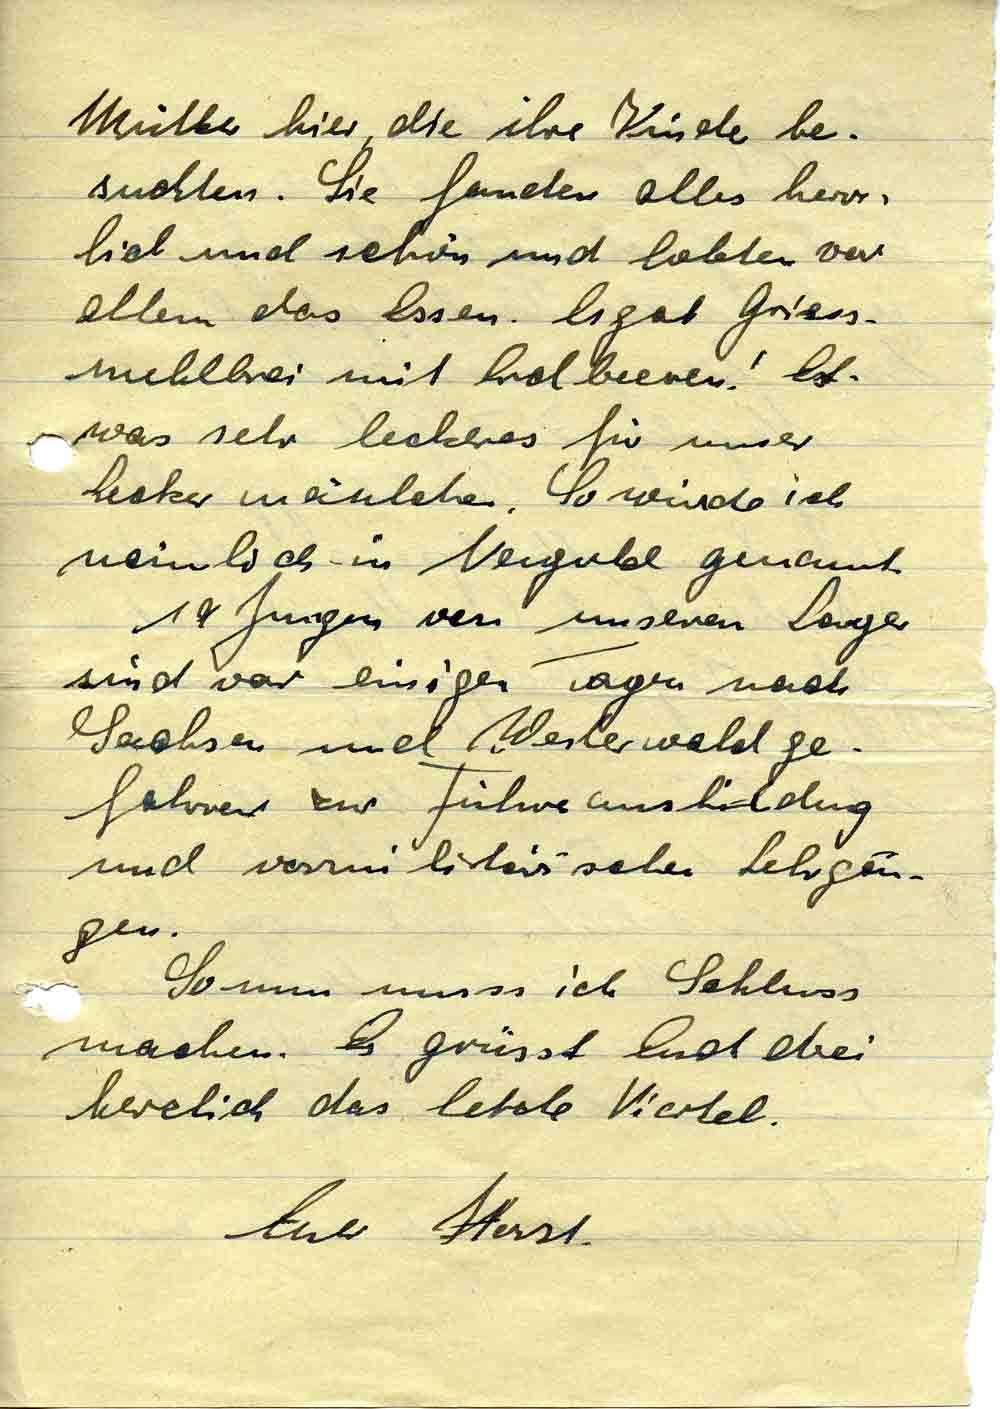 Mütter hier, die ihre Kinder be-
suchten. Sie fanden alles herr-
lich und schön und lobten vor
allem das Essen. Es gab Griess-
mehlbrei mit Erdbeeren! Et-
was sehr leckeres für unser
leckermäulchen. So wurde ich
nämlich in genannt
Jungen von unseren Lager
sind vor einigen Tagen nach
Sachsen und Westerwald ge-
fahren zur Führerausbildung
und vormilitärischen Lehrgän-
gen.
So nun muss ich Schluss
machen. Es grüsst Euch drei
herzlich das letzte Viertel.
Euer Horst.